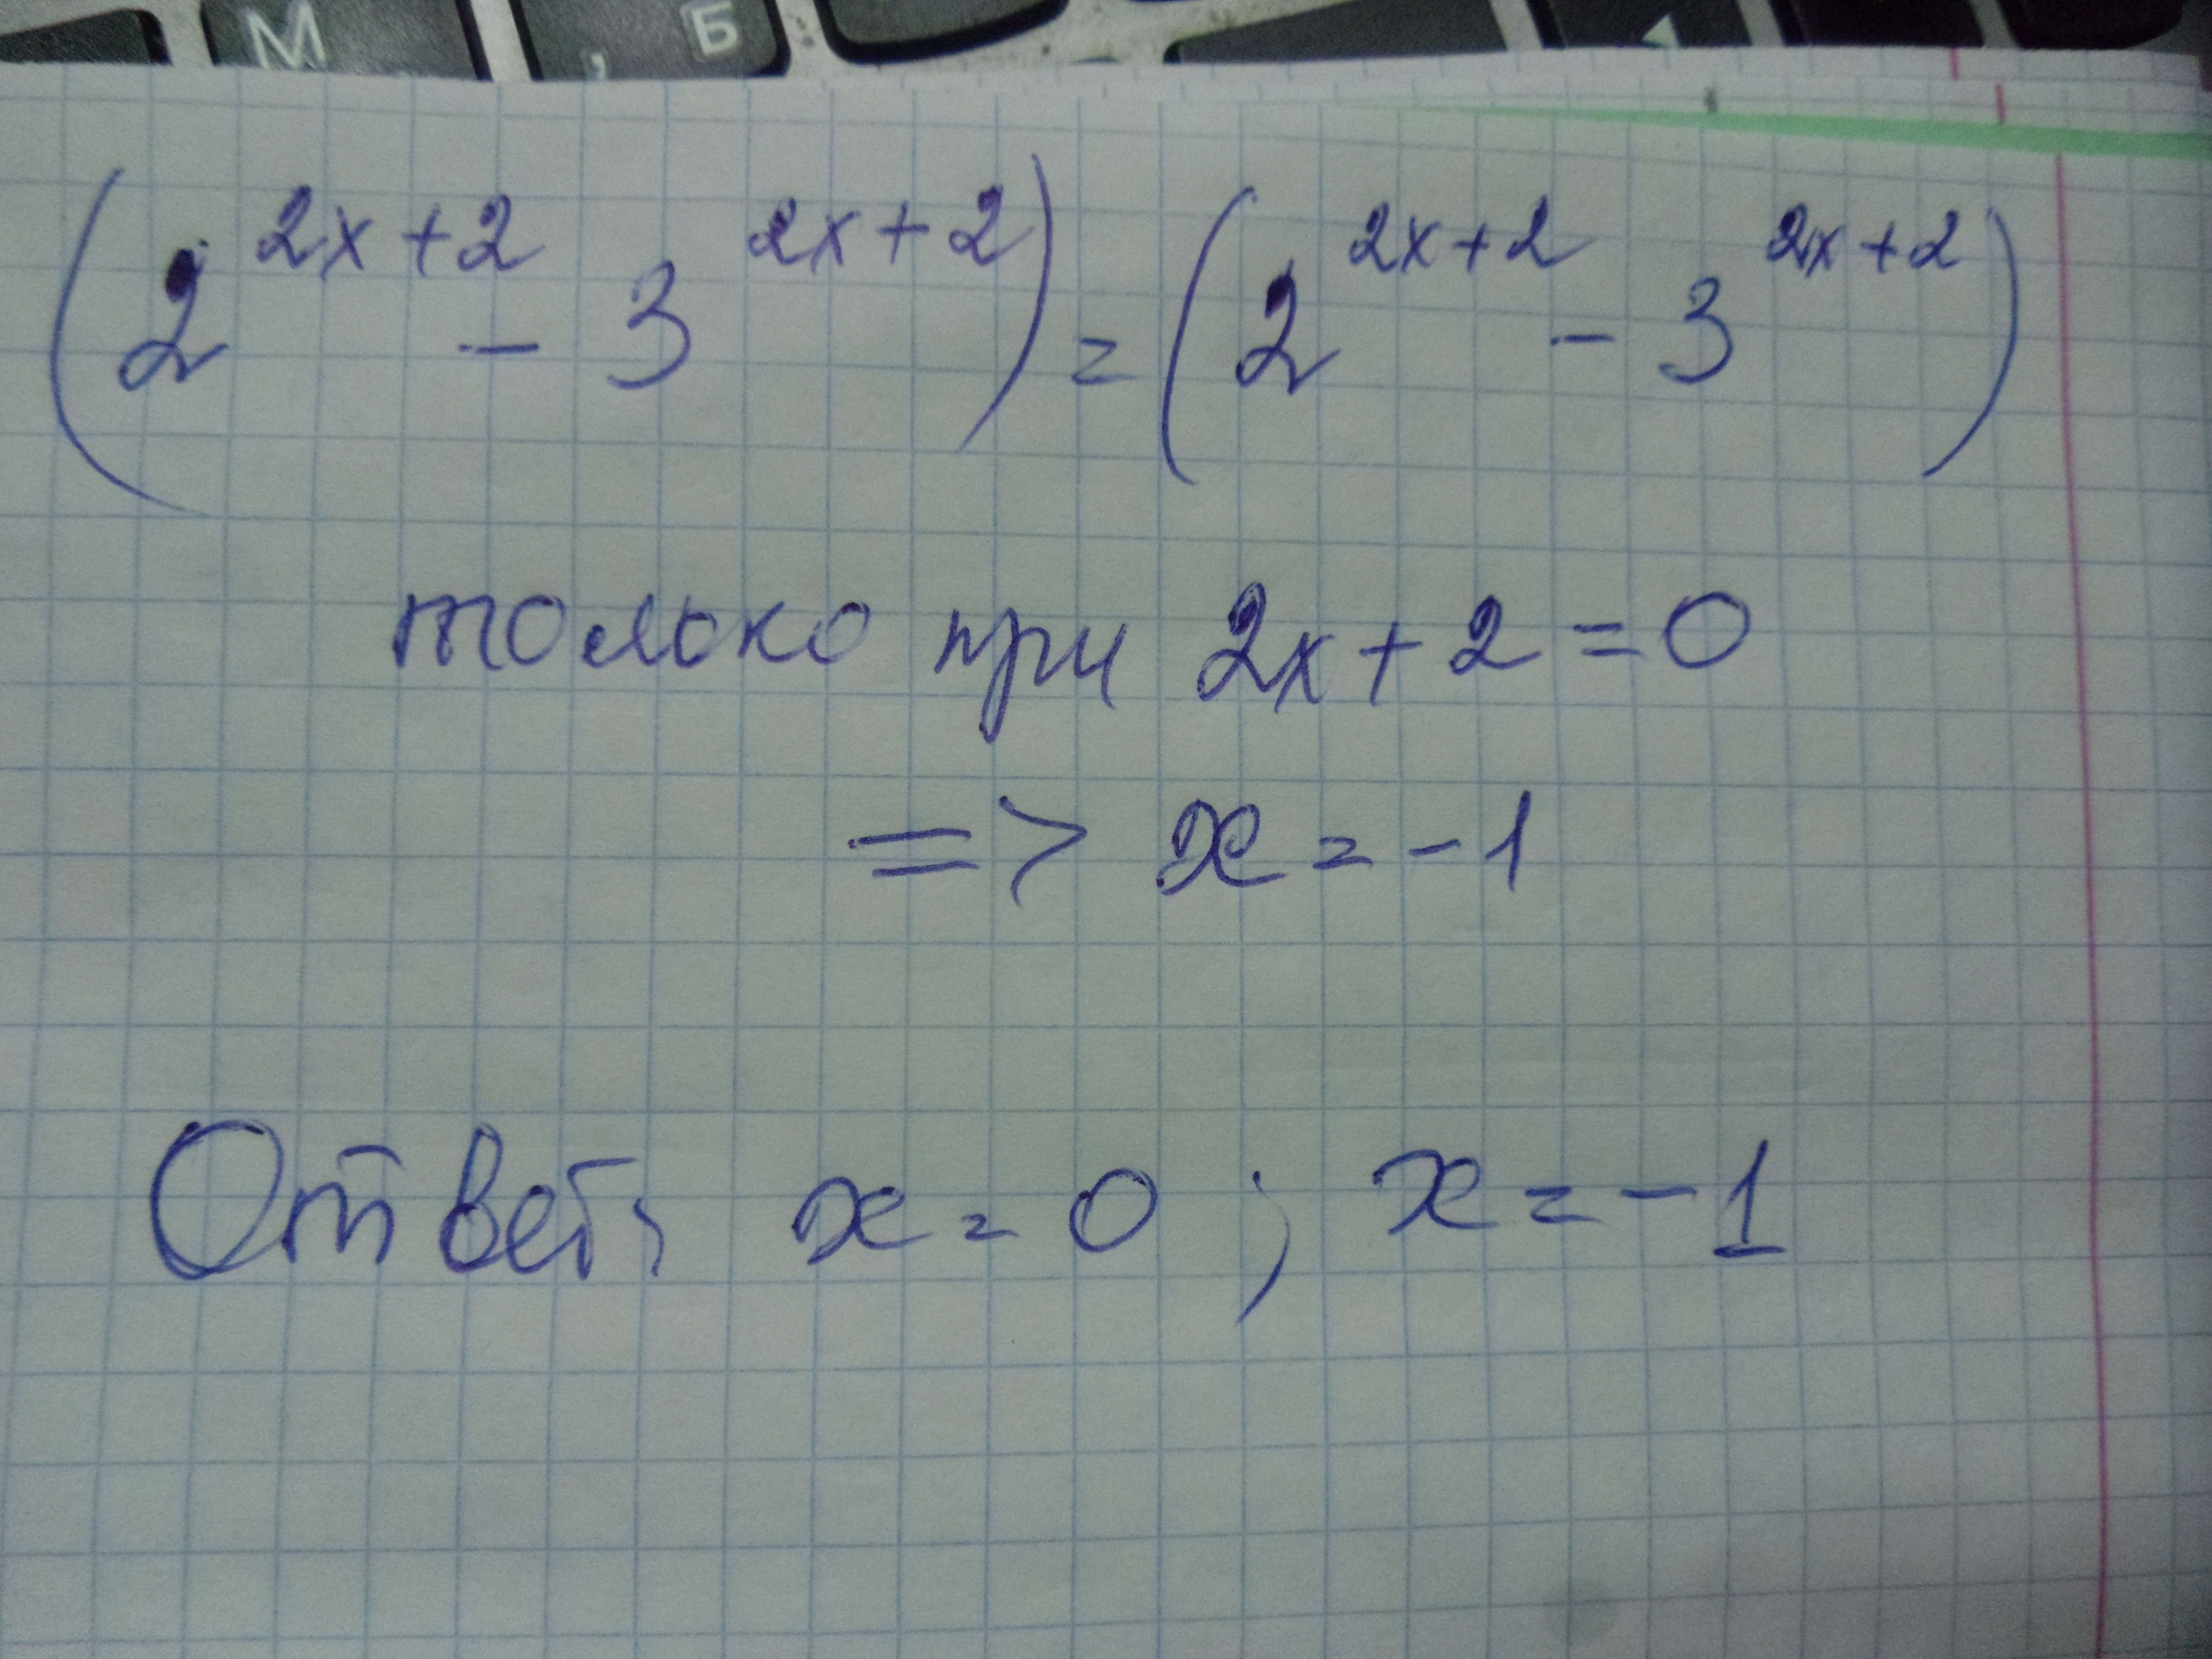 М , Б
(2^{2x+2} - 3^{2x+2}) = (2^{2x+2} - 3^{2x+2})
только при 2x+2=0
=> x = -1
Ответ: x = 0 ; x = -1